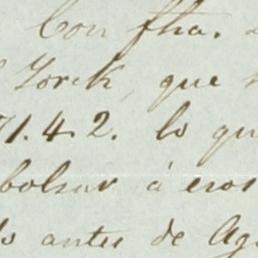 Con fha.
Yorck, que
71.4.2. lo qu
bolsar á esos
antes de Ag